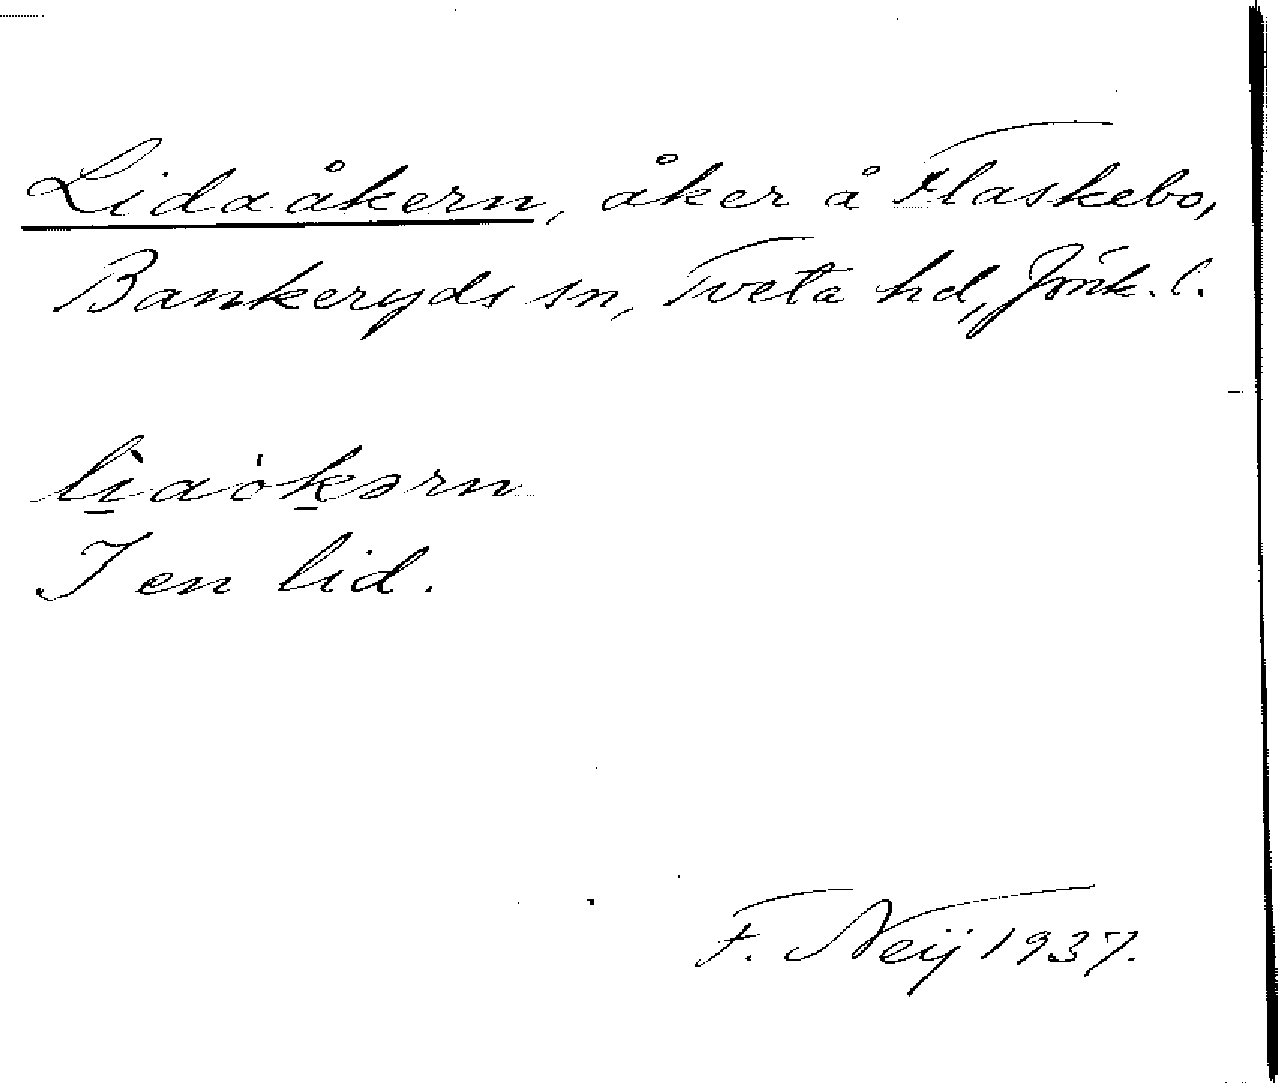 Lidaåkern, åker å Flaskebo,
Bankeryds sn, Tveta hd, Jönk. l.
lì̠aók̠ərn
I en lid.
F. Neij 1937.